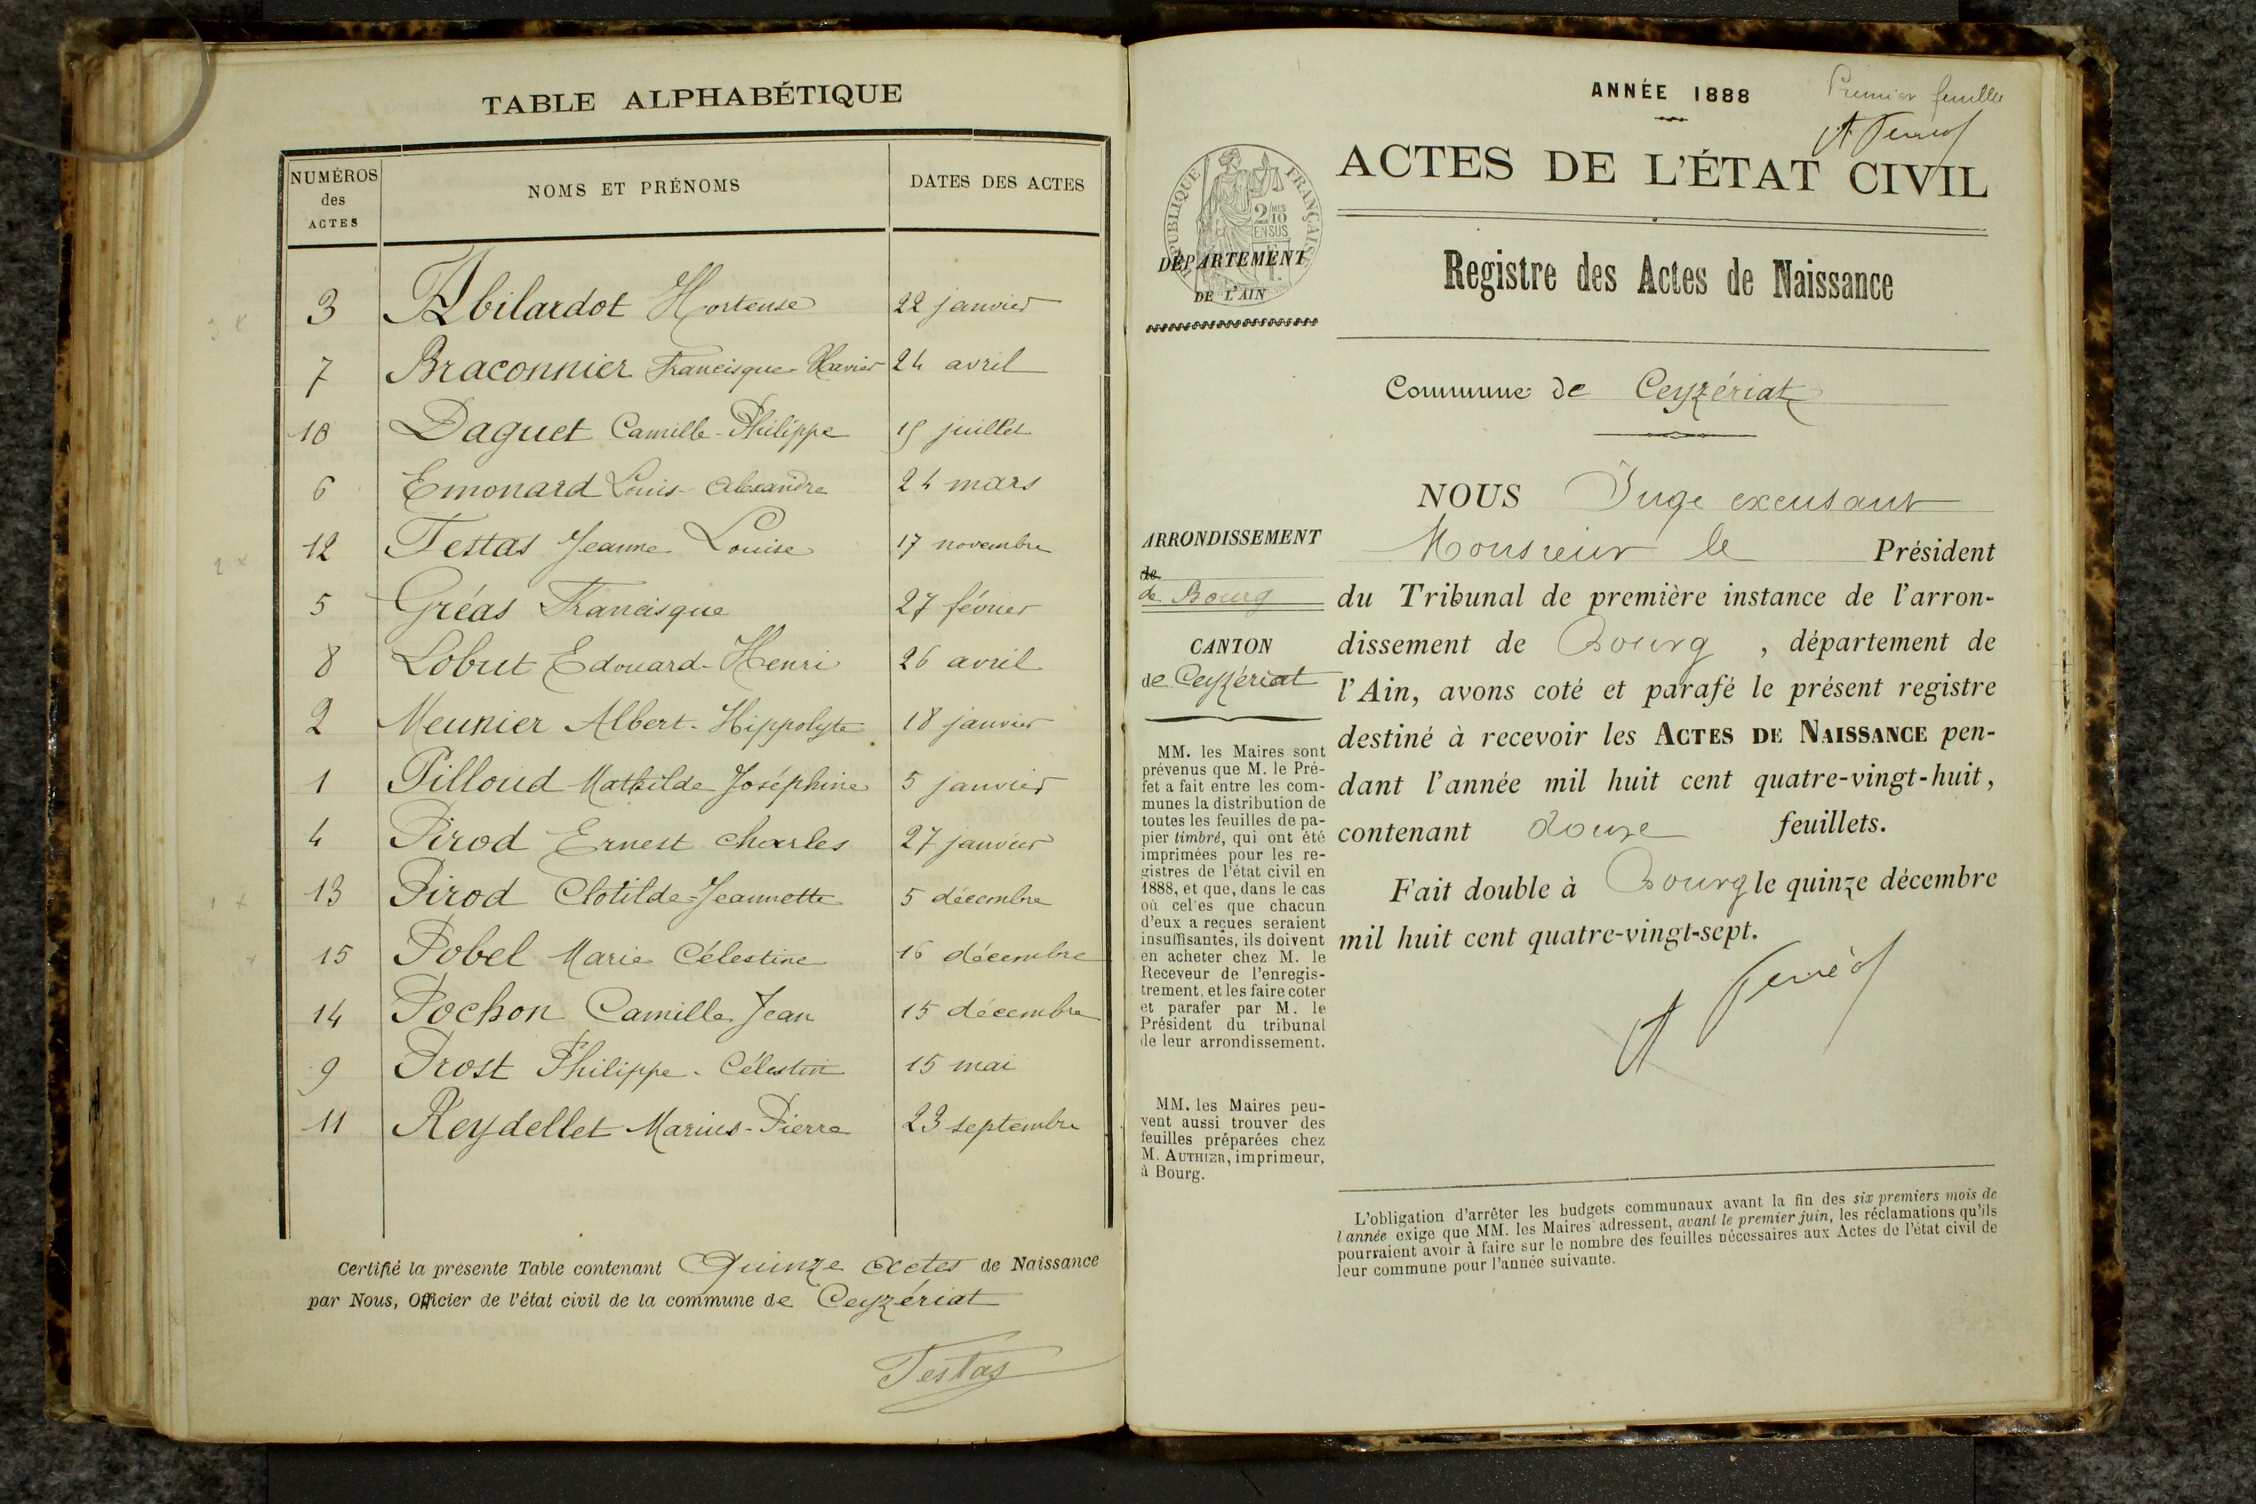 TABLE ALPHABÉTIQUE
NUMÉROS des ACTES NOMS ET PRÉNOMS DATES DES ACTES
3 Abilardot Hortense 22 janvier
7 Braconnier Francisque-Xavier 24 avril
10 Daguet Camille-Philippe 15 juillet
6 Emonard Louis-Alexandre 24 mars
12 Festas Jeanne Louise 17 novembre
5 Gréas Francisque 27 février
8 Lobut Edouard-Henri 26 avril
2 Meunier Albert-Hippolyte 18 janvier
1 Pilloud Mathilde Joséphine 5 janvier
4 Pirod Ernest Charles 27 janvier
13 Pirod Clotilde-Jeannette 5 décembre
15 Pobel Marie Célestine 16 décembre
14 Pochon Camille Jean 15 décembre
9 Prost Philippe-Célestin 15 mai
11 Reydellet Marius-Pierre 23 septembre
Certifié la présente Table contenant Quinze Actes de Naissance
par Nous, Officier de l'état civil de la commune de Ceyzériat
Festas
ANNÉE 1888
Premier feuillet
ACTES DE L'ÉTAT CIVIL
RÉPUBLIQUE FRANÇAISE
2/10
EN SUS
DÉPARTEMENT
DE L'AIN
Registre des Actes de Naissance
Commune de Ceyzériat
NOUS Juge excusant
Monsieur le Président
du Tribunal de première instance de l'arron-
dissement de Bourg, département de
l'Ain, avons coté et parafé le présent registre
destiné à recevoir les ACTES DE NAISSANCE pen-
dant l'année mil huit cent quatre-vingt-huit,
contenant douze feuillets.
Fait double à Bourg le quinze décembre
mil huit cent quatre-vingt-sept.
ARRONDISSEMENT
de
de Bourg
CANTON
de Ceyzériat
MM. les Maires sont
prévenus que M. le Pré-
fet a fait entre les com-
munes la distribution de
toutes les feuilles de pa-
pier timbré, qui ont été
imprimées pour les re-
gistres de l'état civil en
1888, et que, dans le cas
où celles que chacun
d'eux a reçues seraient
insuffisantes, ils doivent
en acheter chez M. le
Receveur de l'enregis-
trement, et les faire coter
et parafer par M. le
Président du tribunal
de leur arrondissement.
MM. les Maires peu-
vent aussi trouver des
feuilles préparées chez
M. AUTHIER, imprimeur,
à Bourg.
L'obligation d'arrêter les budgets communaux avant la fin des six premiers mois de
l'année exige que MM. les Maires adressent, avant le premier juin, les réclamations qu'ils
pourraient avoir à faire sur le nombre des feuilles nécessaires aux Actes de l'état civil de
leur commune pour l'année suivante.